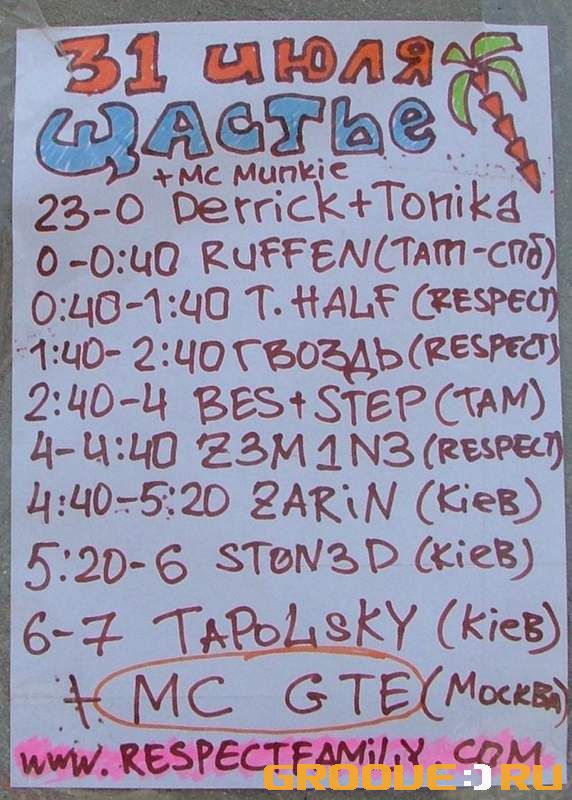 31 июля
Щастье
+ MC Munkie
23-0 Derrick + Tonika
0-0:40 RUFFEN (ТАМ-СПб)
0:40-1:40 T. HALF (RESPECT)
1:40-2:40 ГВОЗДЬ (RESPECT)
2:40-4 BES + STEP (TAM)
4-4:40 Z3M1N3 (RESPECT)
4:40-5:20 ZARiN (Киев)
5:20-6 STON3D (Киев)
6-7 TAPOLSKY (Киев)
+ MC GTE (Москва)
www.RESPECTFAMiLY.COM
GROOVE:)RU